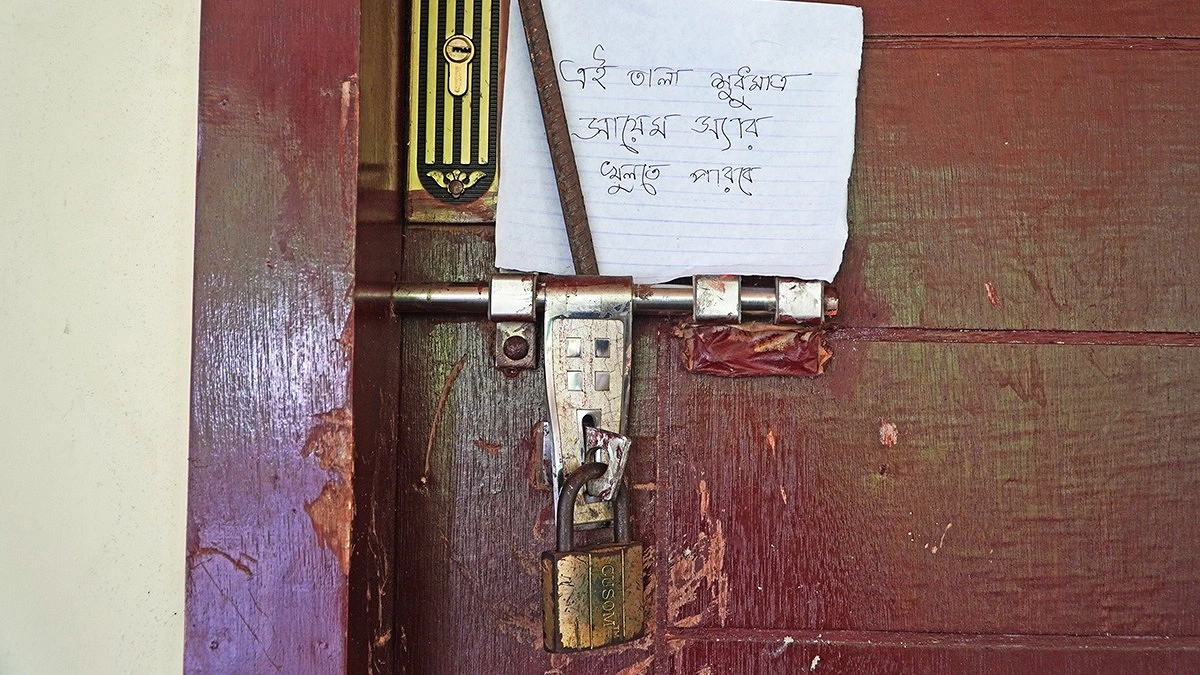 এই তালা শুধুমাত্র
সায়েম স্যার
খুলতে পারবে
CUSOM